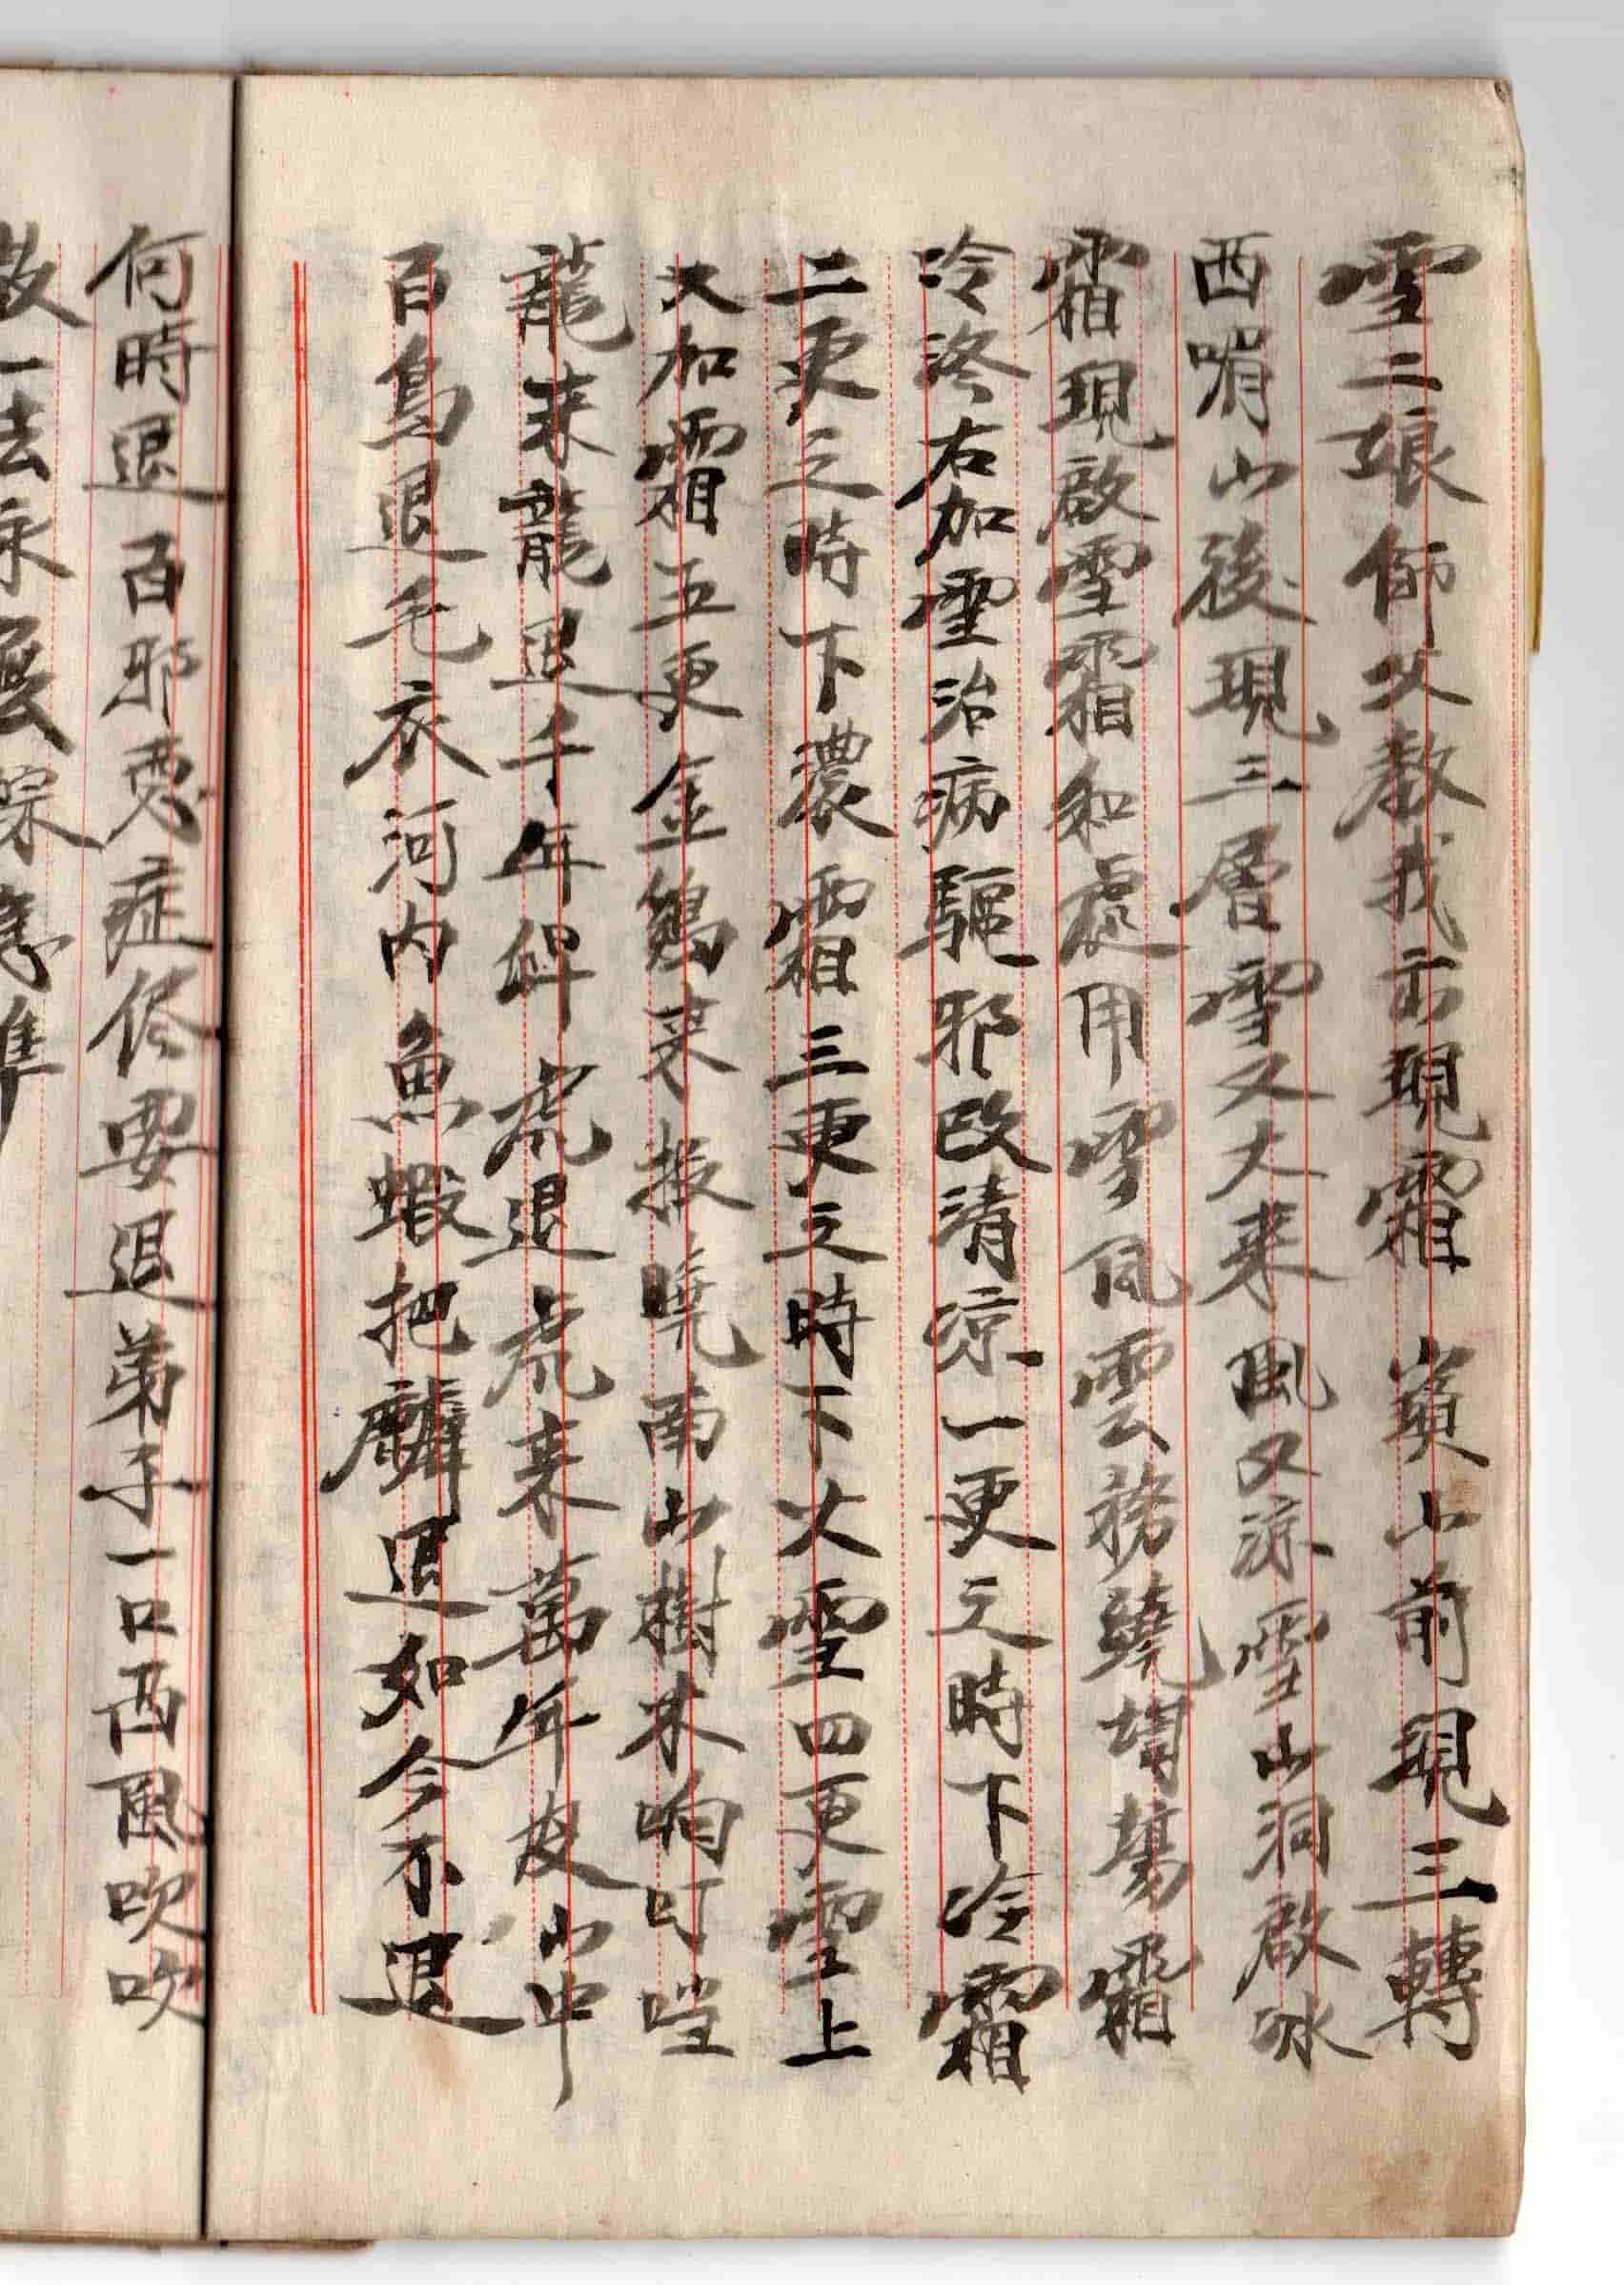 雪二娘師父教我云現霜 山前現三轉
西嵋山後現三層雪又大来風又涼雪山洞啟冰
霜現啟雪霜和處用雪風雲務繞壇塲霜
冷冷右加雪治病驅邪改清凉一更之時下冷霜
二更之時下濃霜三更之時下大雪四更雪上
大加霜五更金鷄来报曉南山樹木响叮噹
龍来龍退千年 虎退虎来萬年皮山中
百鳥退毛衣河内魚蝦把麟退如今不退
何時退百邪惡症侭要退弟子一口西風吹吹
敕一去永無踪急準